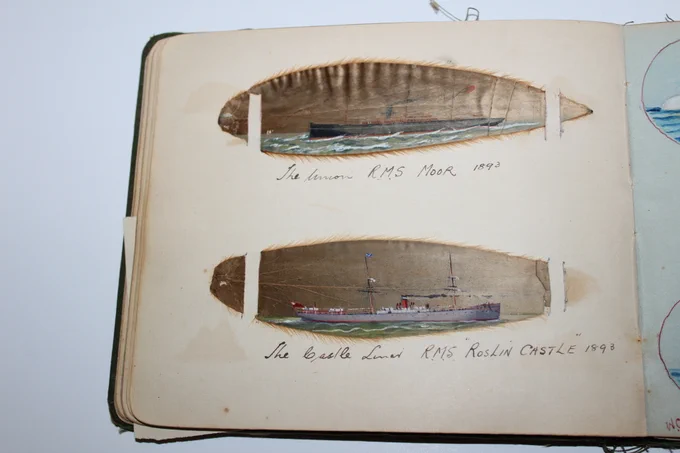 The Union RMS MOOR 1893
The Castle Liner RMS "ROSLIN CASTLE" 1893